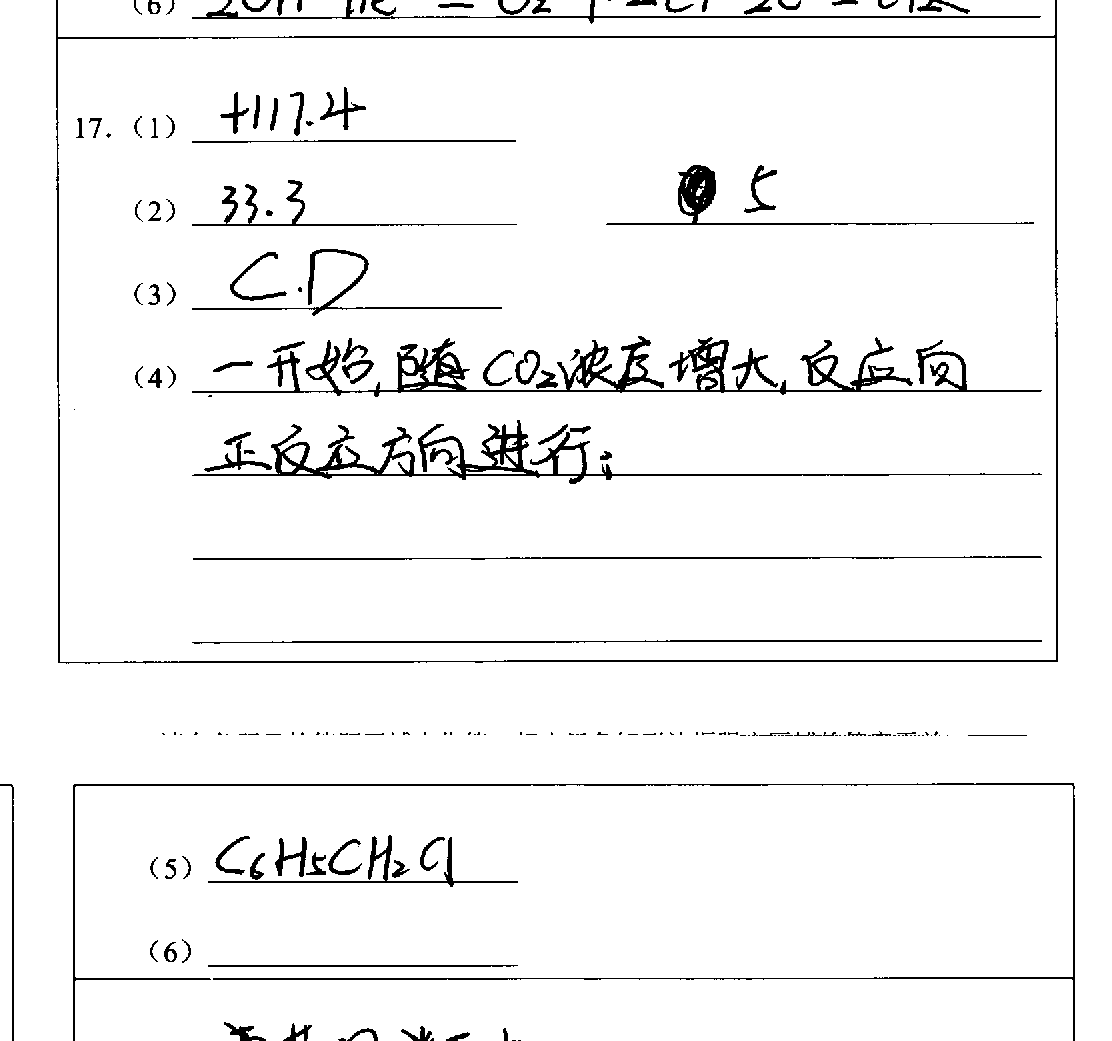 (6)
17. (1) +117.4
(2) 33.3 5
(3) C.D
(4) 一开始,随CO₂浓度增大,反应向
正反应方向进行;
(5) C₆H₅CH₂Cl
(6)